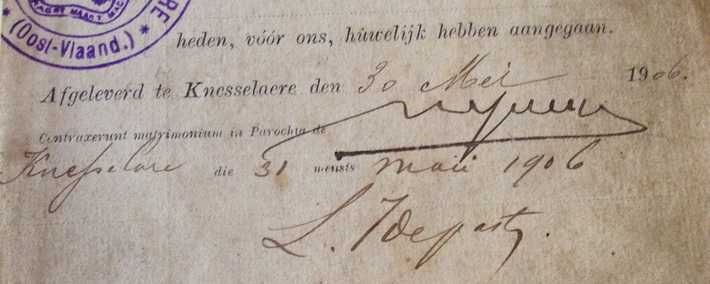 RE
* (Oost-Vlaand.) *
heden, vóór ons, huwelijk hebben aangegaan.
Afgeleverd te Knesselaere den 30 Mei 1906.
Contraxerunt matrimonium in Parochia de
Knesselare die 31 mensis maii 1906
L.